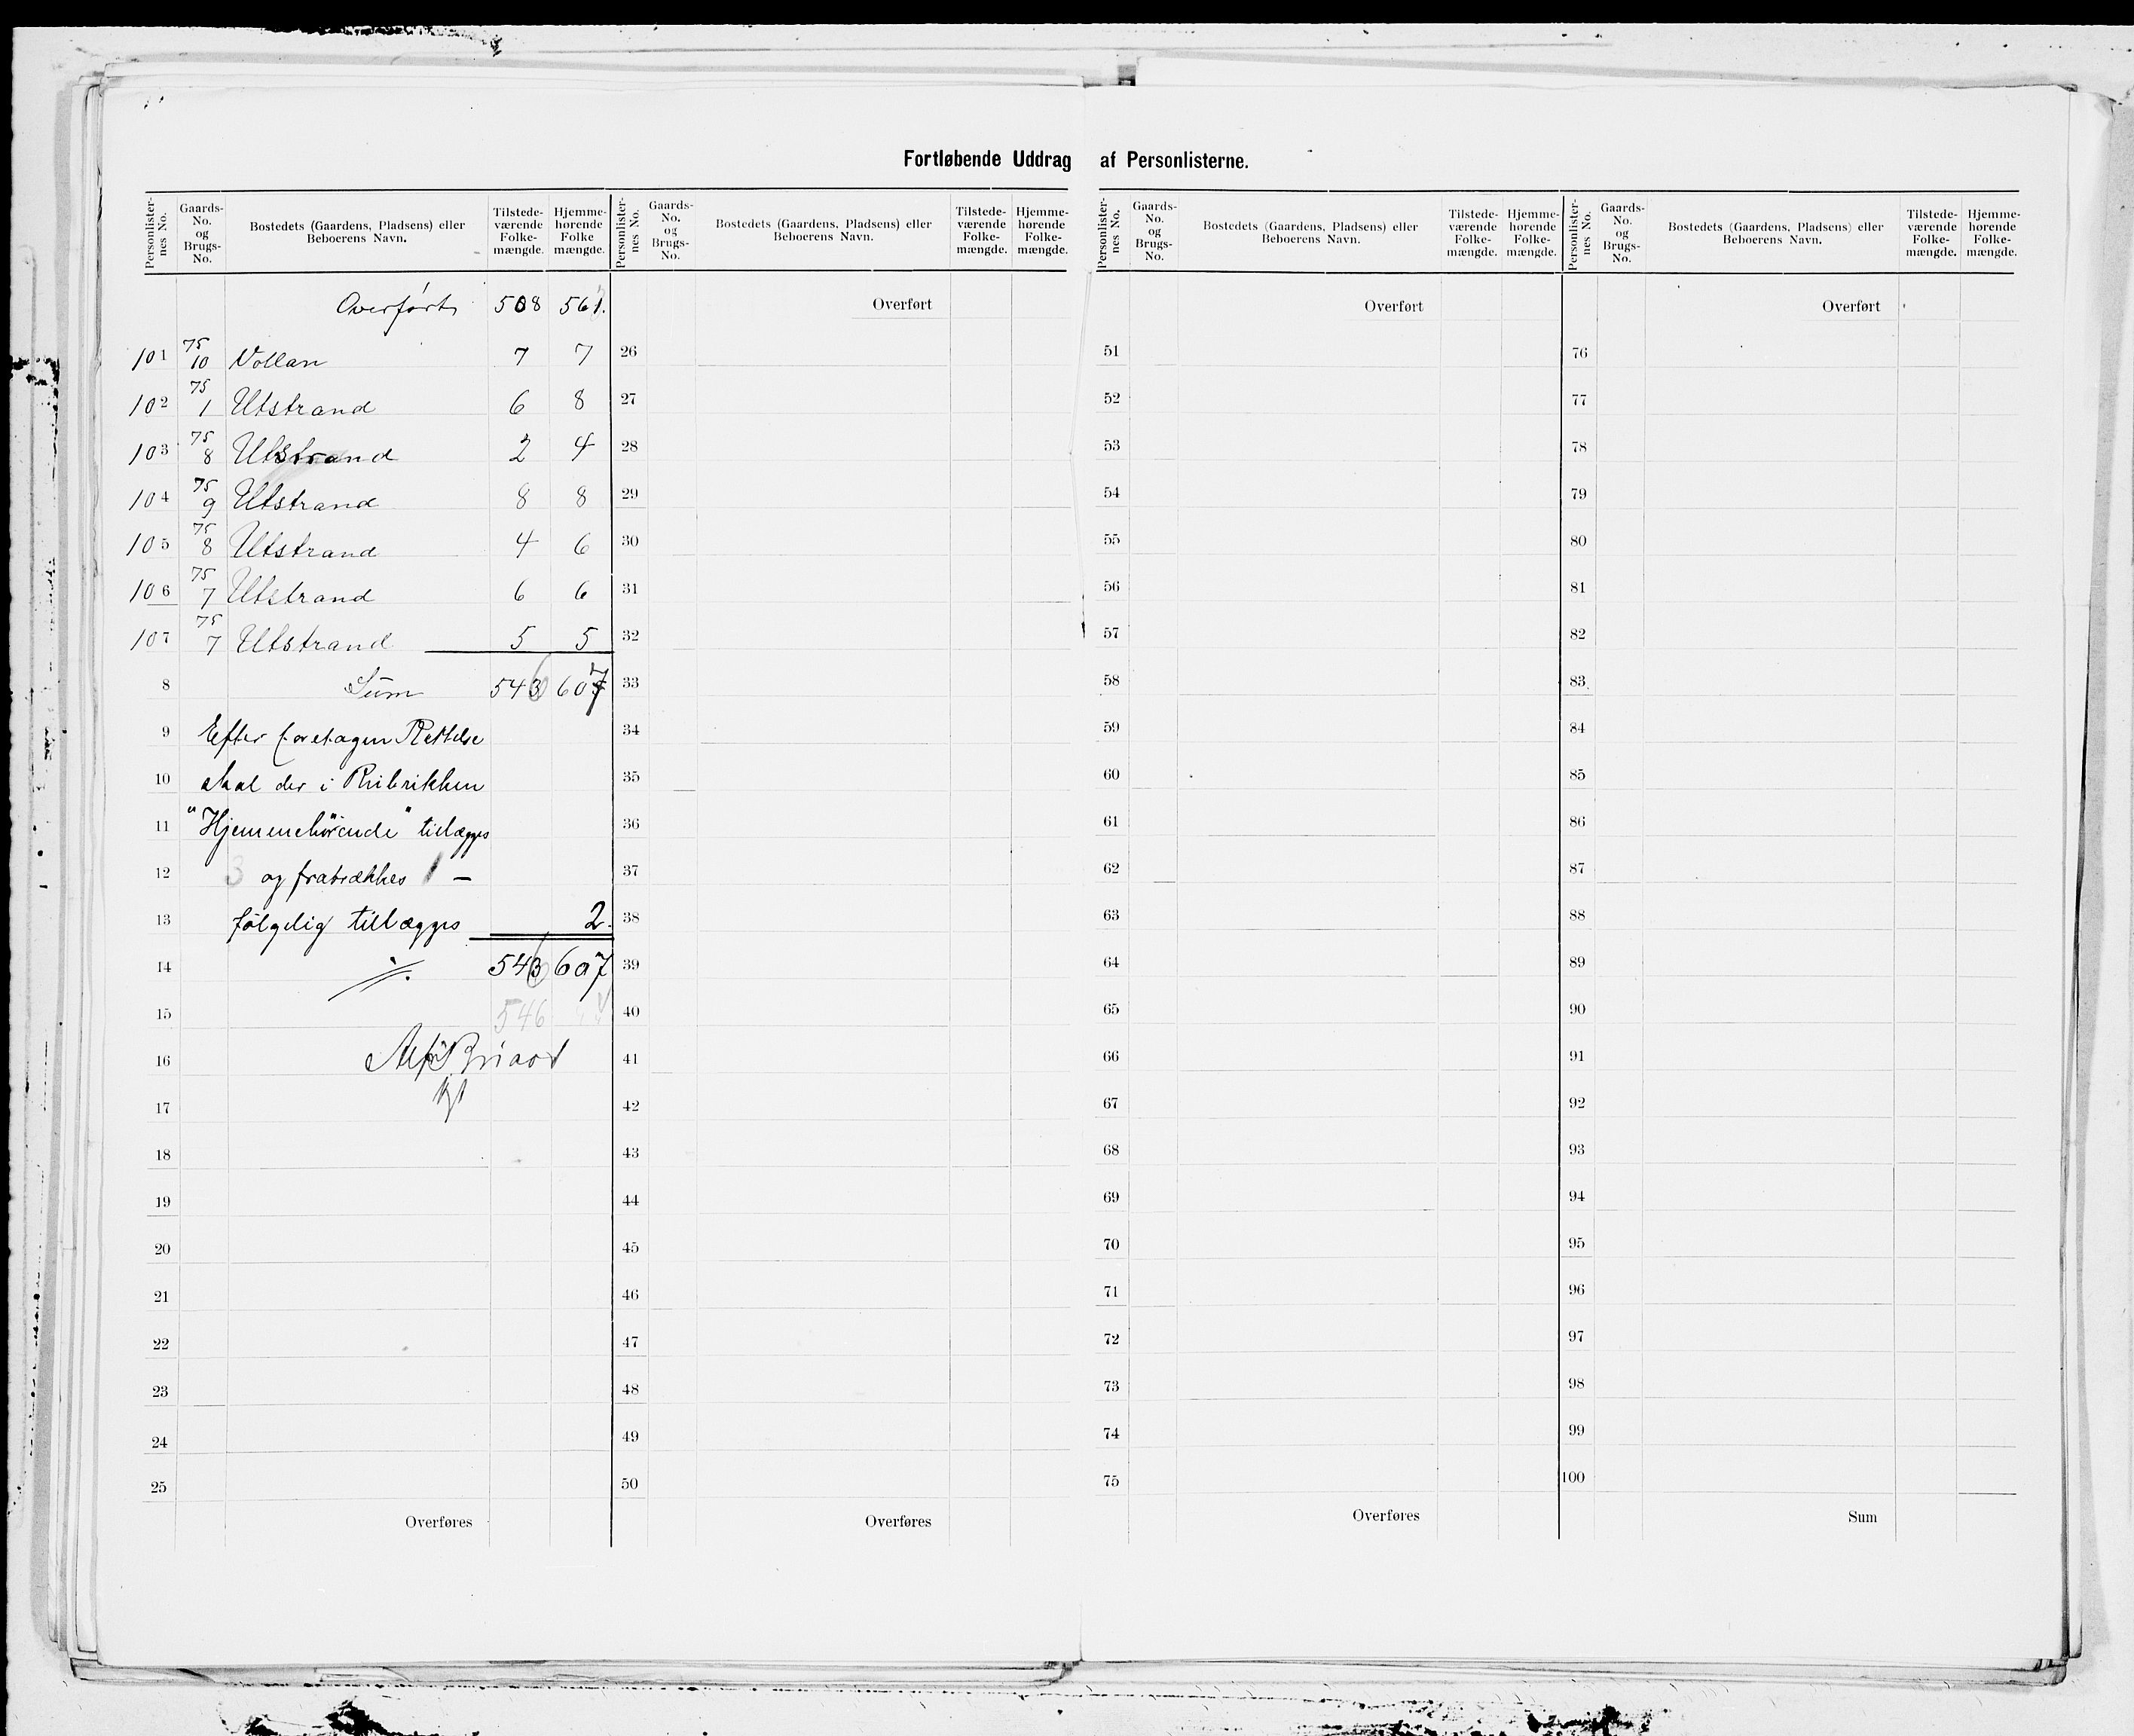 Fortløbende Uddrag af Personlisterne.
Personlister-nes No. Gaards-No. og Brugs-No. Bostedets (Gaardens, Pladsens) eller Beboerens Navn. Tilstede-værende Folke-mængde. Hjemme-hørende Folke mængde.
Overført 508 561.
101 75/10 Vollan 7 7
102 75/1 Utstrand 6 8
103 75/8 Utstrand 2 4
104 75/9 Utstrand 8 8
105 75/8 Utstrand 4 6
106 75/7 Utstrand 6 6
107 75/7 Utstrand 5 5
8 Sum 543 607
9 Efter foretagen Rettelse
10 skal der i Rubrikken
11 "Hjemmehörende" tillægges
12 3 og fratrækkes 1 —
13 følgelig tillægges 2.
14 543 607
15 546
16
17
18
19
20
21
22
23
24
25
Overføres
Personlister-nes No. Gaards-No. og Brugs-No. Bostedets (Gaardens, Pladsens) eller Beboerens Navn. Tilstede-værende Folke-mængde. Hjemme-hørende Folke-mængde.
Overført
26
27
28
29
30
31
32
33
34
35
36
37
38
39
40
41
42
43
44
45
46
47
48
49
50
Overføres
Personlister-nes No. Gaards-No. og Brugs-No. Bostedets (Gaardens, Pladsens) eller Beboerens Navn. Tilstede-værende Folke-mængde. Hjemme-hørende Folke-mængde.
Overført
51
52
53
54
55
56
57
58
59
60
61
62
63
64
65
66
67
68
69
70
71
72
73
74
75
Overføres
Personlister-nes No. Gaards-No. og Brugs-No. Bostedets (Gaardens, Pladsens) eller Beboerens Navn. Tilstede-værende Folke-mængde. Hjemme-hørende Folke-mængde.
Overført
76
77
78
79
80
81
82
83
84
85
86
87
88
89
90
91
92
93
94
95
96
97
98
99
100
Sum